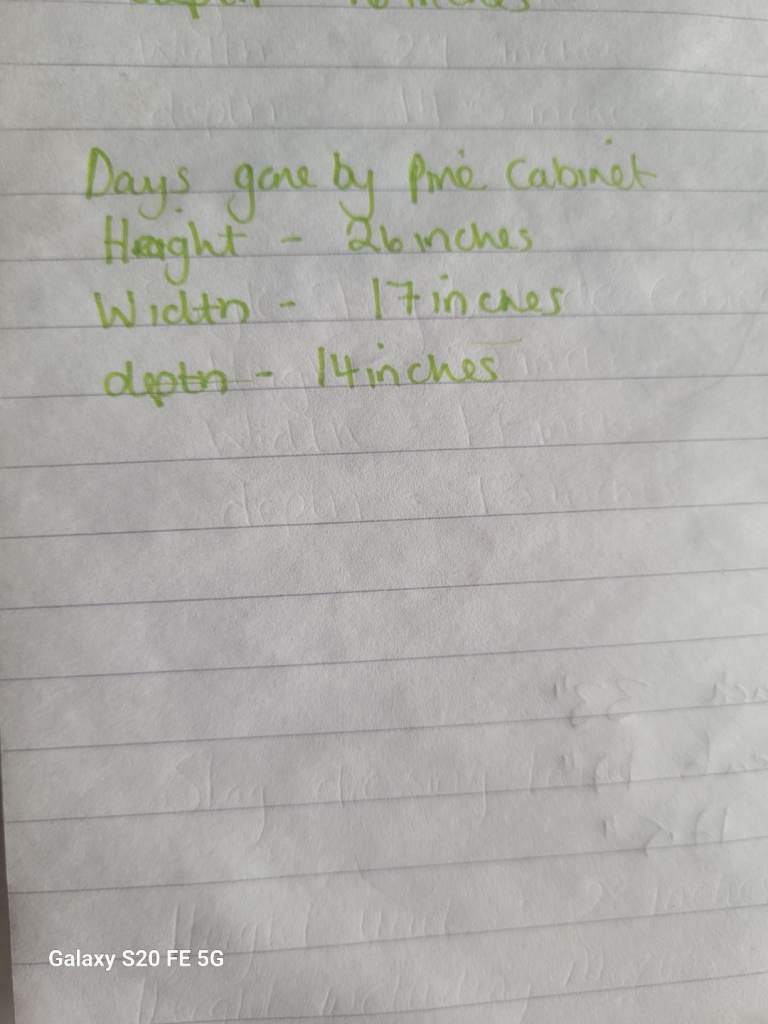 depth 10 inches
Days gone by Pine Cabinet
Height - 26 inches
Width - 17 inches
depth - 14 inches
Galaxy S20 FE 5G